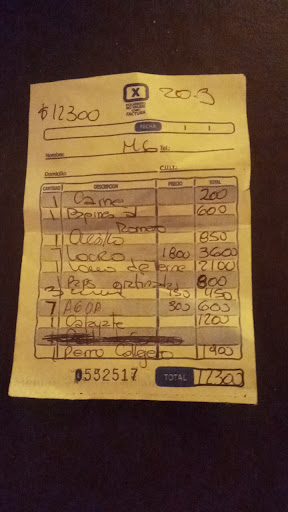 X
DOCUMENTO
NO VALIDO
COMO
FACTURA
20-3
$12300
FECHA
M6
Nombre: Tel.:
Domicilio: C.U.I.T.:
CANTIDAD DESCRIPCION PRECIO TOTAL
1 Carne 200
1 Papas al 600
Romero
1 850
2 Locro 1800 3600
1 Lomo de 2100
1 Paps 800
3 150 450
2 AGUA 300 600
1 1200
1 Perro 1900
0552517 TOTAL 12300